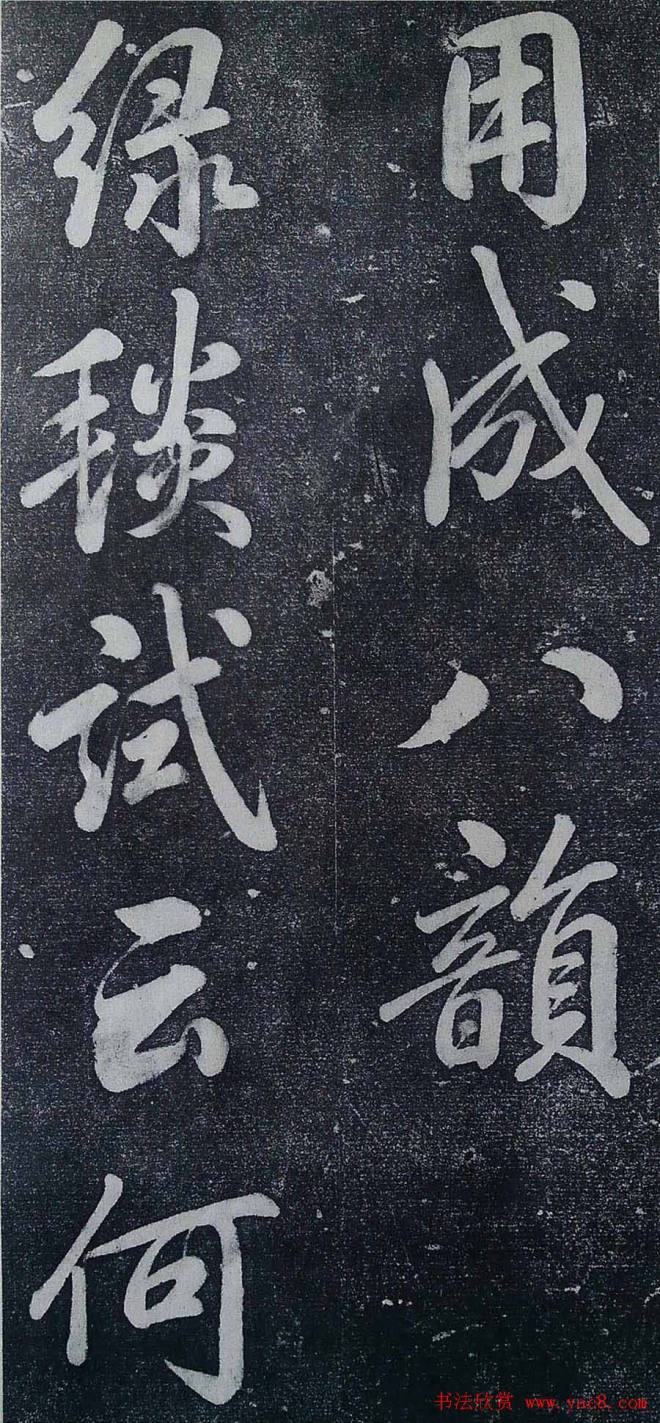 用成八韻
綠毯試云何
书法欣赏 www.yac8.com